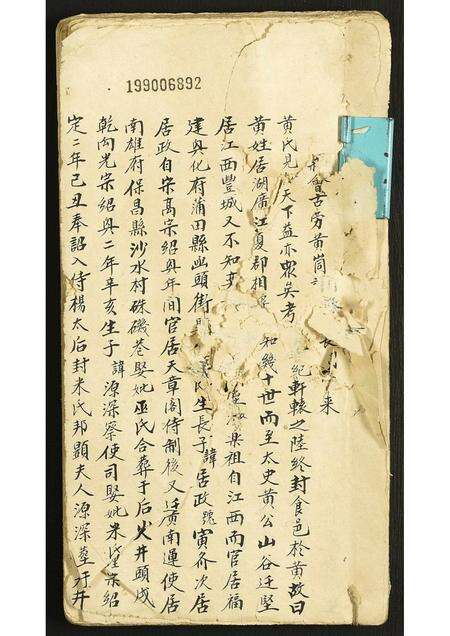 199006892
會古劳黄 来
黄氏見天下益亦眾矣考 紀軒轅之陸終封食邑於黄故曰
黄姓居湖廣江夏郡相 知幾十世而至太史黄公山谷迁堅
居江西豐城又不知 榮祖自江西而官居福
建興化府蒲田縣 頭街 氏生長子諱居政號寅斎次居
居政自宋高宗紹興年间官居天章阁侍制後又迁廣南運使居
南雄府保昌縣沙水村硃磯巷娶妣巫氏合葬于后火井頭戌
乾向光宗紹興二年辛亥生子諱源深察使司娶妣米 宗紹
定二年己丑奉詔入侍楊太后封米氏邦顕夫人源深墓于井